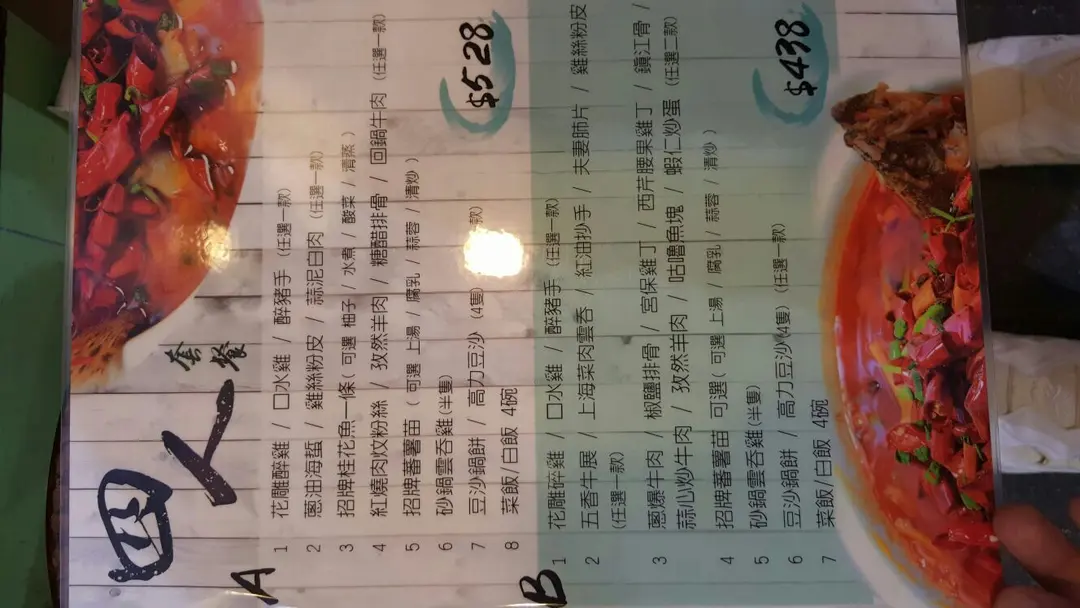 四人套餐
A
$528
1 花雕醉雞 / 口水雞 / 醉豬手 (任選一款)
2 蔥油海蜇 / 雞絲粉皮 / 蒜泥白肉 (任選一款)
3 招牌桂花魚一條 ( 可選 柚子 / 水煮 / 酸菜 / 清蒸 )
4 紅燒肉炆粉絲 / 孜然羊肉 / 糖醋排骨 / 回鍋牛肉 (任選一款)
5 招牌蕃薯苗 ( 可選 上湯 / 腐乳 / 蒜蓉 / 清炒 )
6 砂鍋雲吞雞(半隻)
7 豆沙鍋餅 / 高力豆沙 (4隻) 款)
8 菜飯/白飯 4碗
B
$438
1 花雕碎雞 / 口水雞 / 醉豬手 (任選一款)
2 五香牛展 / 上海菜肉雲吞 / 紅油抄手 / 夫妻肺片 / 雞絲粉皮
(任選一款)
3 蔥爆牛肉 / 椒鹽排骨 / 宮保雞丁 / 西芹腰果雞丁 / 鎮江骨 /
蒜心炒牛肉 / 孜然羊肉 / 咕嚕魚塊 / 蝦仁炒蛋 (任選二款)
4 招牌蕃薯苗 可選( 可選 上湯 / 腐乳 / 蒜蓉 / 清炒 )
5 砂鍋雲吞雞(半隻)
6 豆沙鍋餅 / 高力豆沙(4隻) (任選一款)
7 菜飯/白飯 4碗